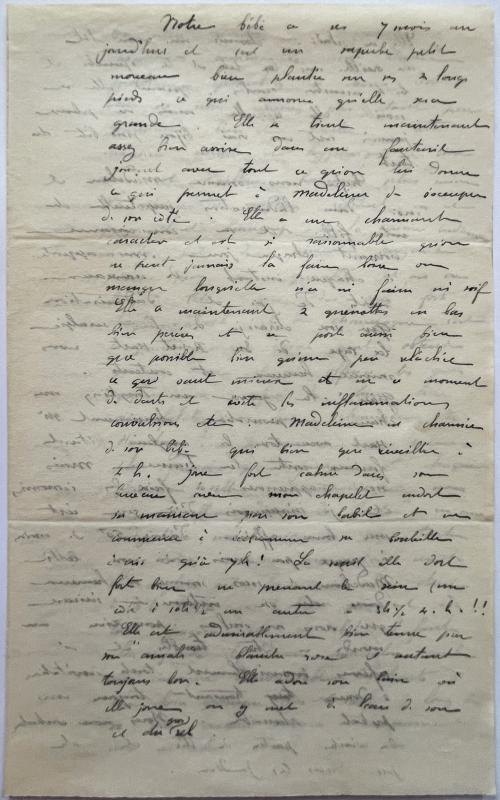 Notre bébé a ses 7 mois au
jourd'hui et est un superbe petit
morceau bien plantée sur ses 2 longs
pieds ce qui annonce qu'elle sera
grande. Elle se tient maintenant
assez bien assise dans un fauteuil
jouant avec tout ce qu'on lui donne
ce qui permet à Madeleine de s'occuper
de son côté. Elle a un charmant
caractère et est si raisonnable qu'on
ne peut jamais la faire boire ou
manger lorsqu'elle n'a ni faim ni soif
Elle a maintenant 2 quenottes en bas
bien percées et se porte aussi bien
que possible bien qu'un peu relachée
ce qui vaut mieux en ce moment
de dents et évite les inflammations
convulsions etc : Madeleine est charmée
de son bébé qui bien que réveillée à
4 h. joue fort calme dans son
berceau avec mon chapelet endort
sa maman par son babil et ne
commence à réclamer sa bouteille
qu'à 7 h! La nuit elle dort
fort bien ne prenant le sein
côté à et un autre à 4 h.!!
Elle est admirablement bien tenue par
son blanche rose et sentant
toujours bon. Elle adore son bain où
elle joue on y met de son
et du gros sel